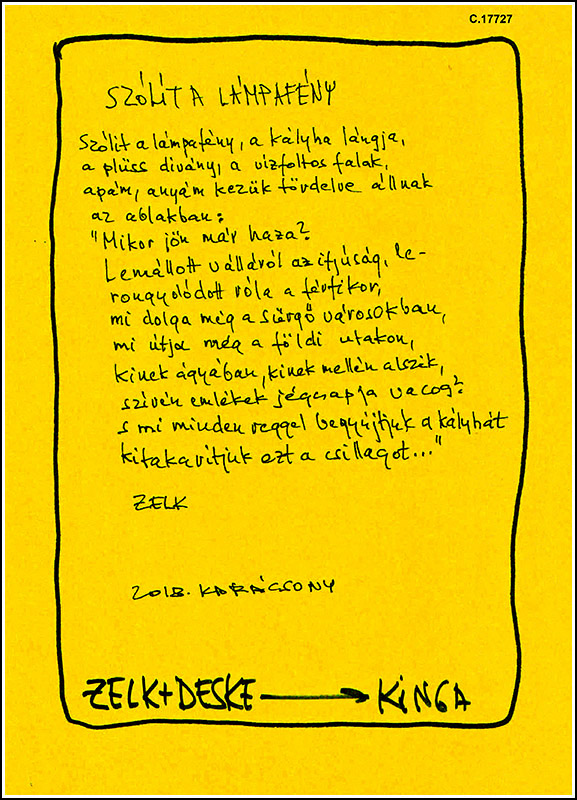 C.17727
SZÓLÍT A LÁMPAFÉNY
Szólít a lámpafény, a kályha lángja,
a plüss divány, a vízfoltos falak,
apám, anyám kezük tördelve állnak
az ablakban:
"Mikor jön már haza?
Lemállott válláról az ifjúság, le-
rongyolódott róla a férfikor,
mi dolga még a sürgő városokban,
mi útja még a földi utakon,
kinek ágyában, kinek mellén alszik,
szívén emlékek jégcsapja vacog?
s mi minden reggel begyújtjuk a kályhát
kitakarítjuk ezt a csillagot..."
ZELK
2018. KARÁCSONY
ZELK+DESKE → KINGA